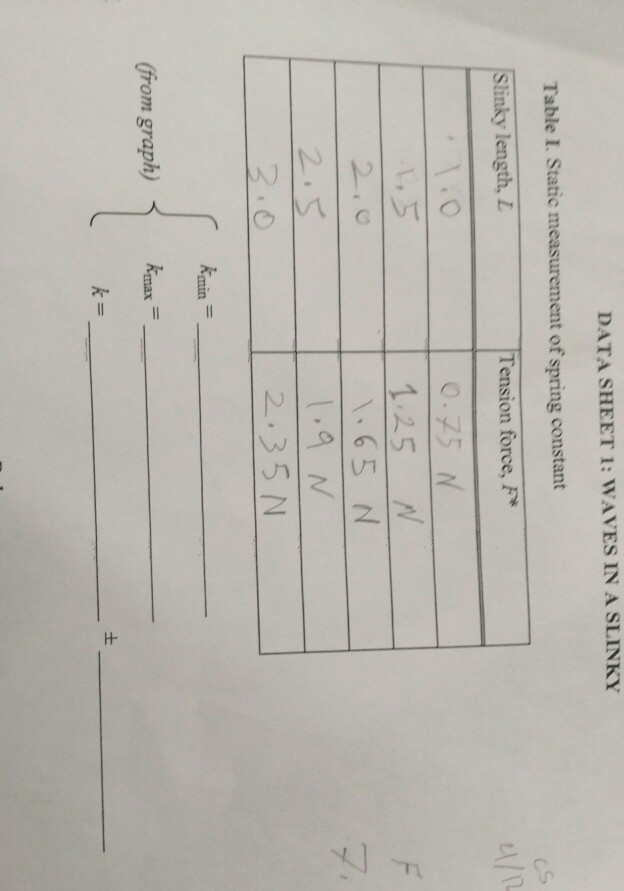 DATA SHEET 1: WAVES IN A SLINKY
Table I. Static measurement of spring constant
Slinky length, L Tension force, F*
1.0 0.75 N
1.5 1.25 N
2.0 1.65 N
2.5 1.9 N
3.0 2.35 N
kmin =
(from graph) kmax =
k = ±
CS
F
7.